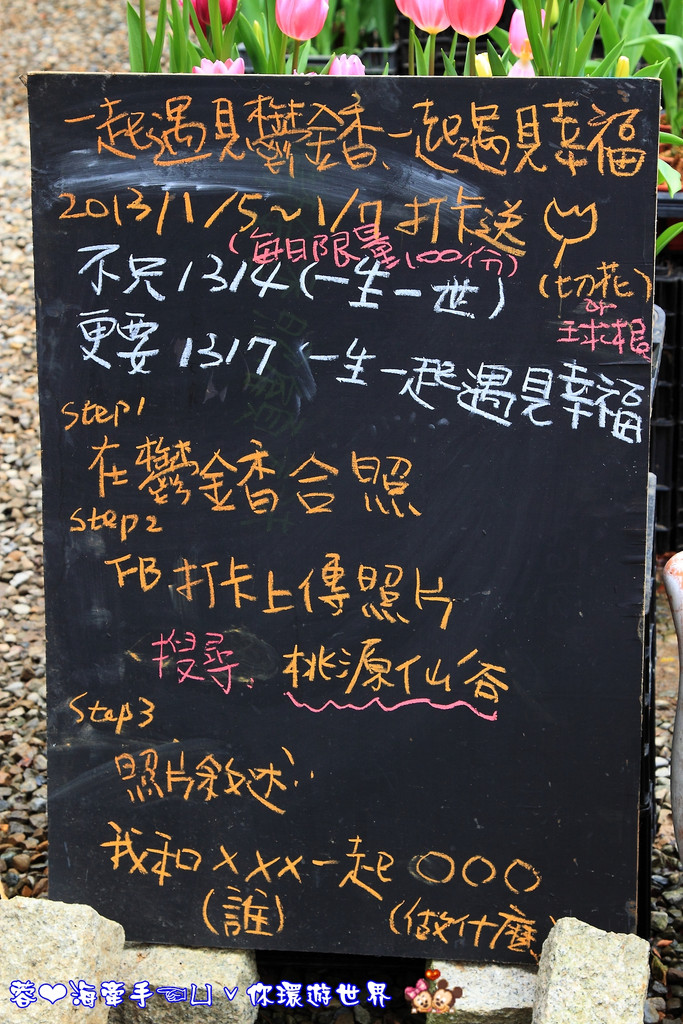 一起遇見鬱金香、一起遇見幸福
2013/1/5~1/7 打卡送
(每日限量100份)
(切花)
or
球根
不只1314(一生一世)
更要1317 一生一起遇見幸福
step1
在鬱金香合照
step2
FB打卡上傳照片
搜尋 桃源仙谷
Step3
照片敘述:
我和xxx一起○○○
(誰) (做什麼)
蓉❤海牽手 v 你環遊世界